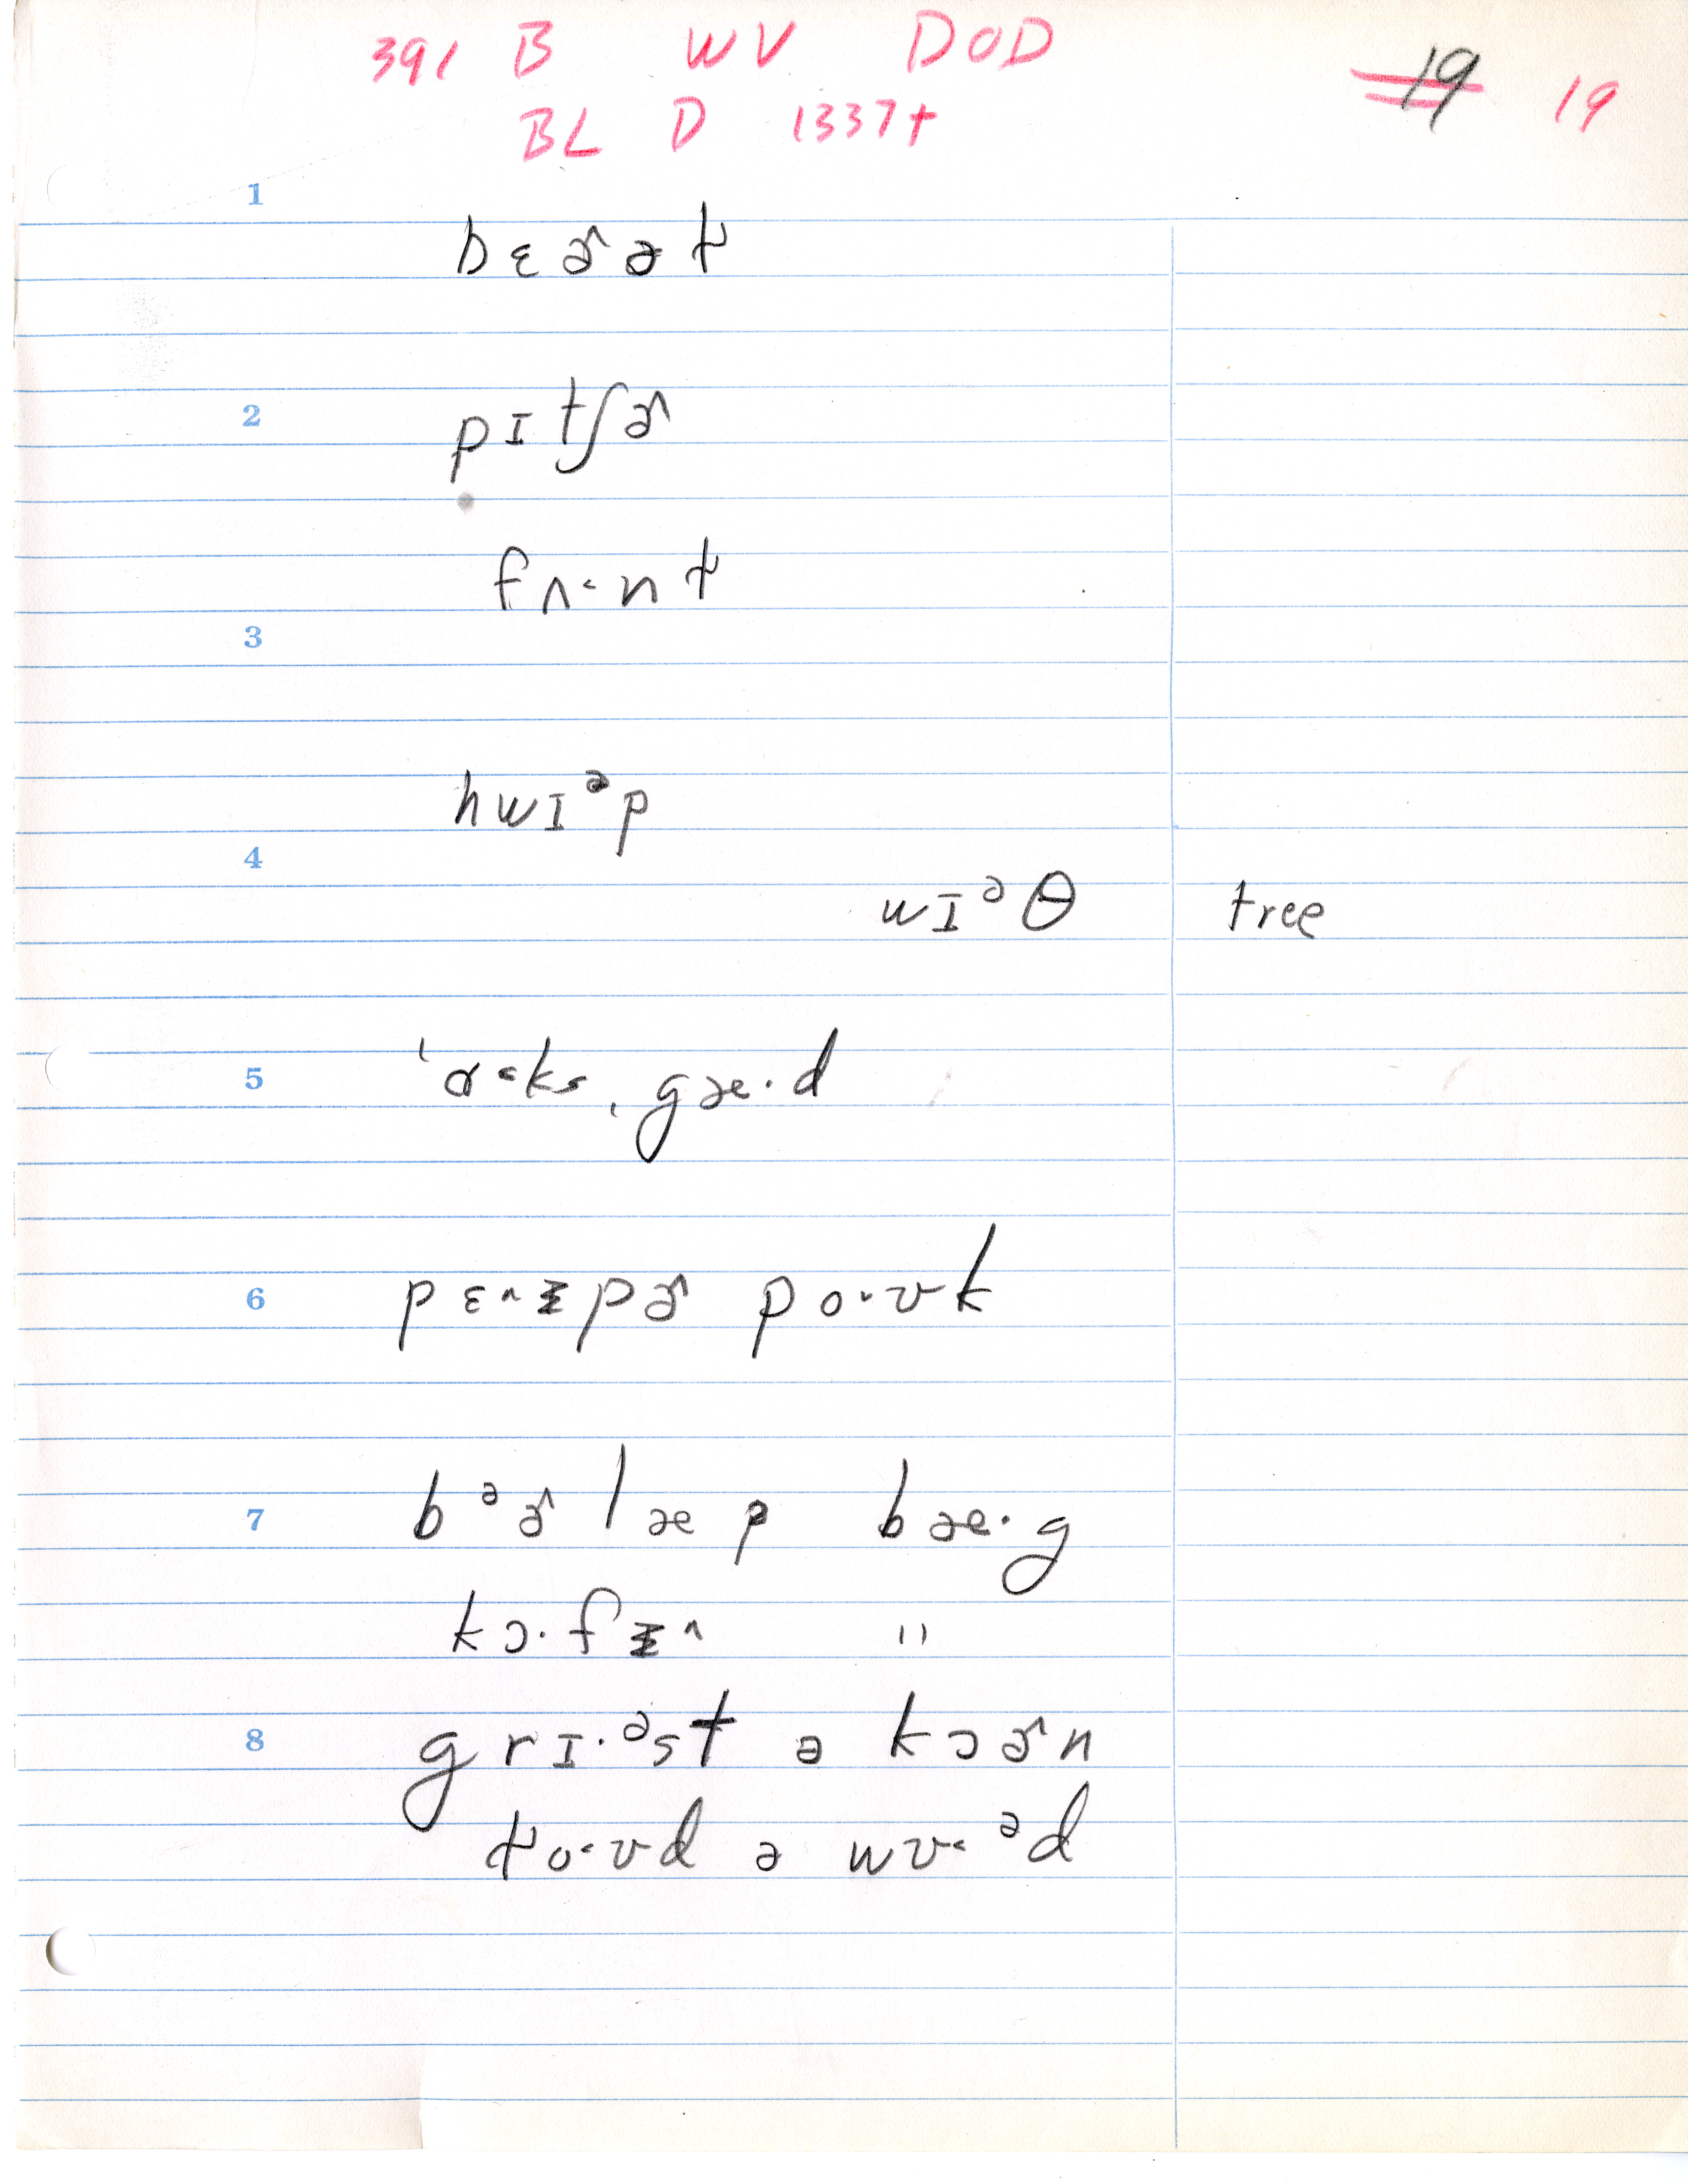 391 B WV DOD
19 19
BL D 1337+
1
bɛɚət̬
2
pɪtʃɚ
fʌ˂nt̬
3
hwɪᵊp
4
wɪᵊθ tree
5
ˈɑ˂ksˌgæ·d
6
pɛ˄ɪpɚ po·ʊk
7
bᵊɚlæp bæ·g
kɔ·fɪ˄ "
8
grɪ·ᵊst ə kɔɚn
t̬o˂ʊd ə wʊ˂ᵊd